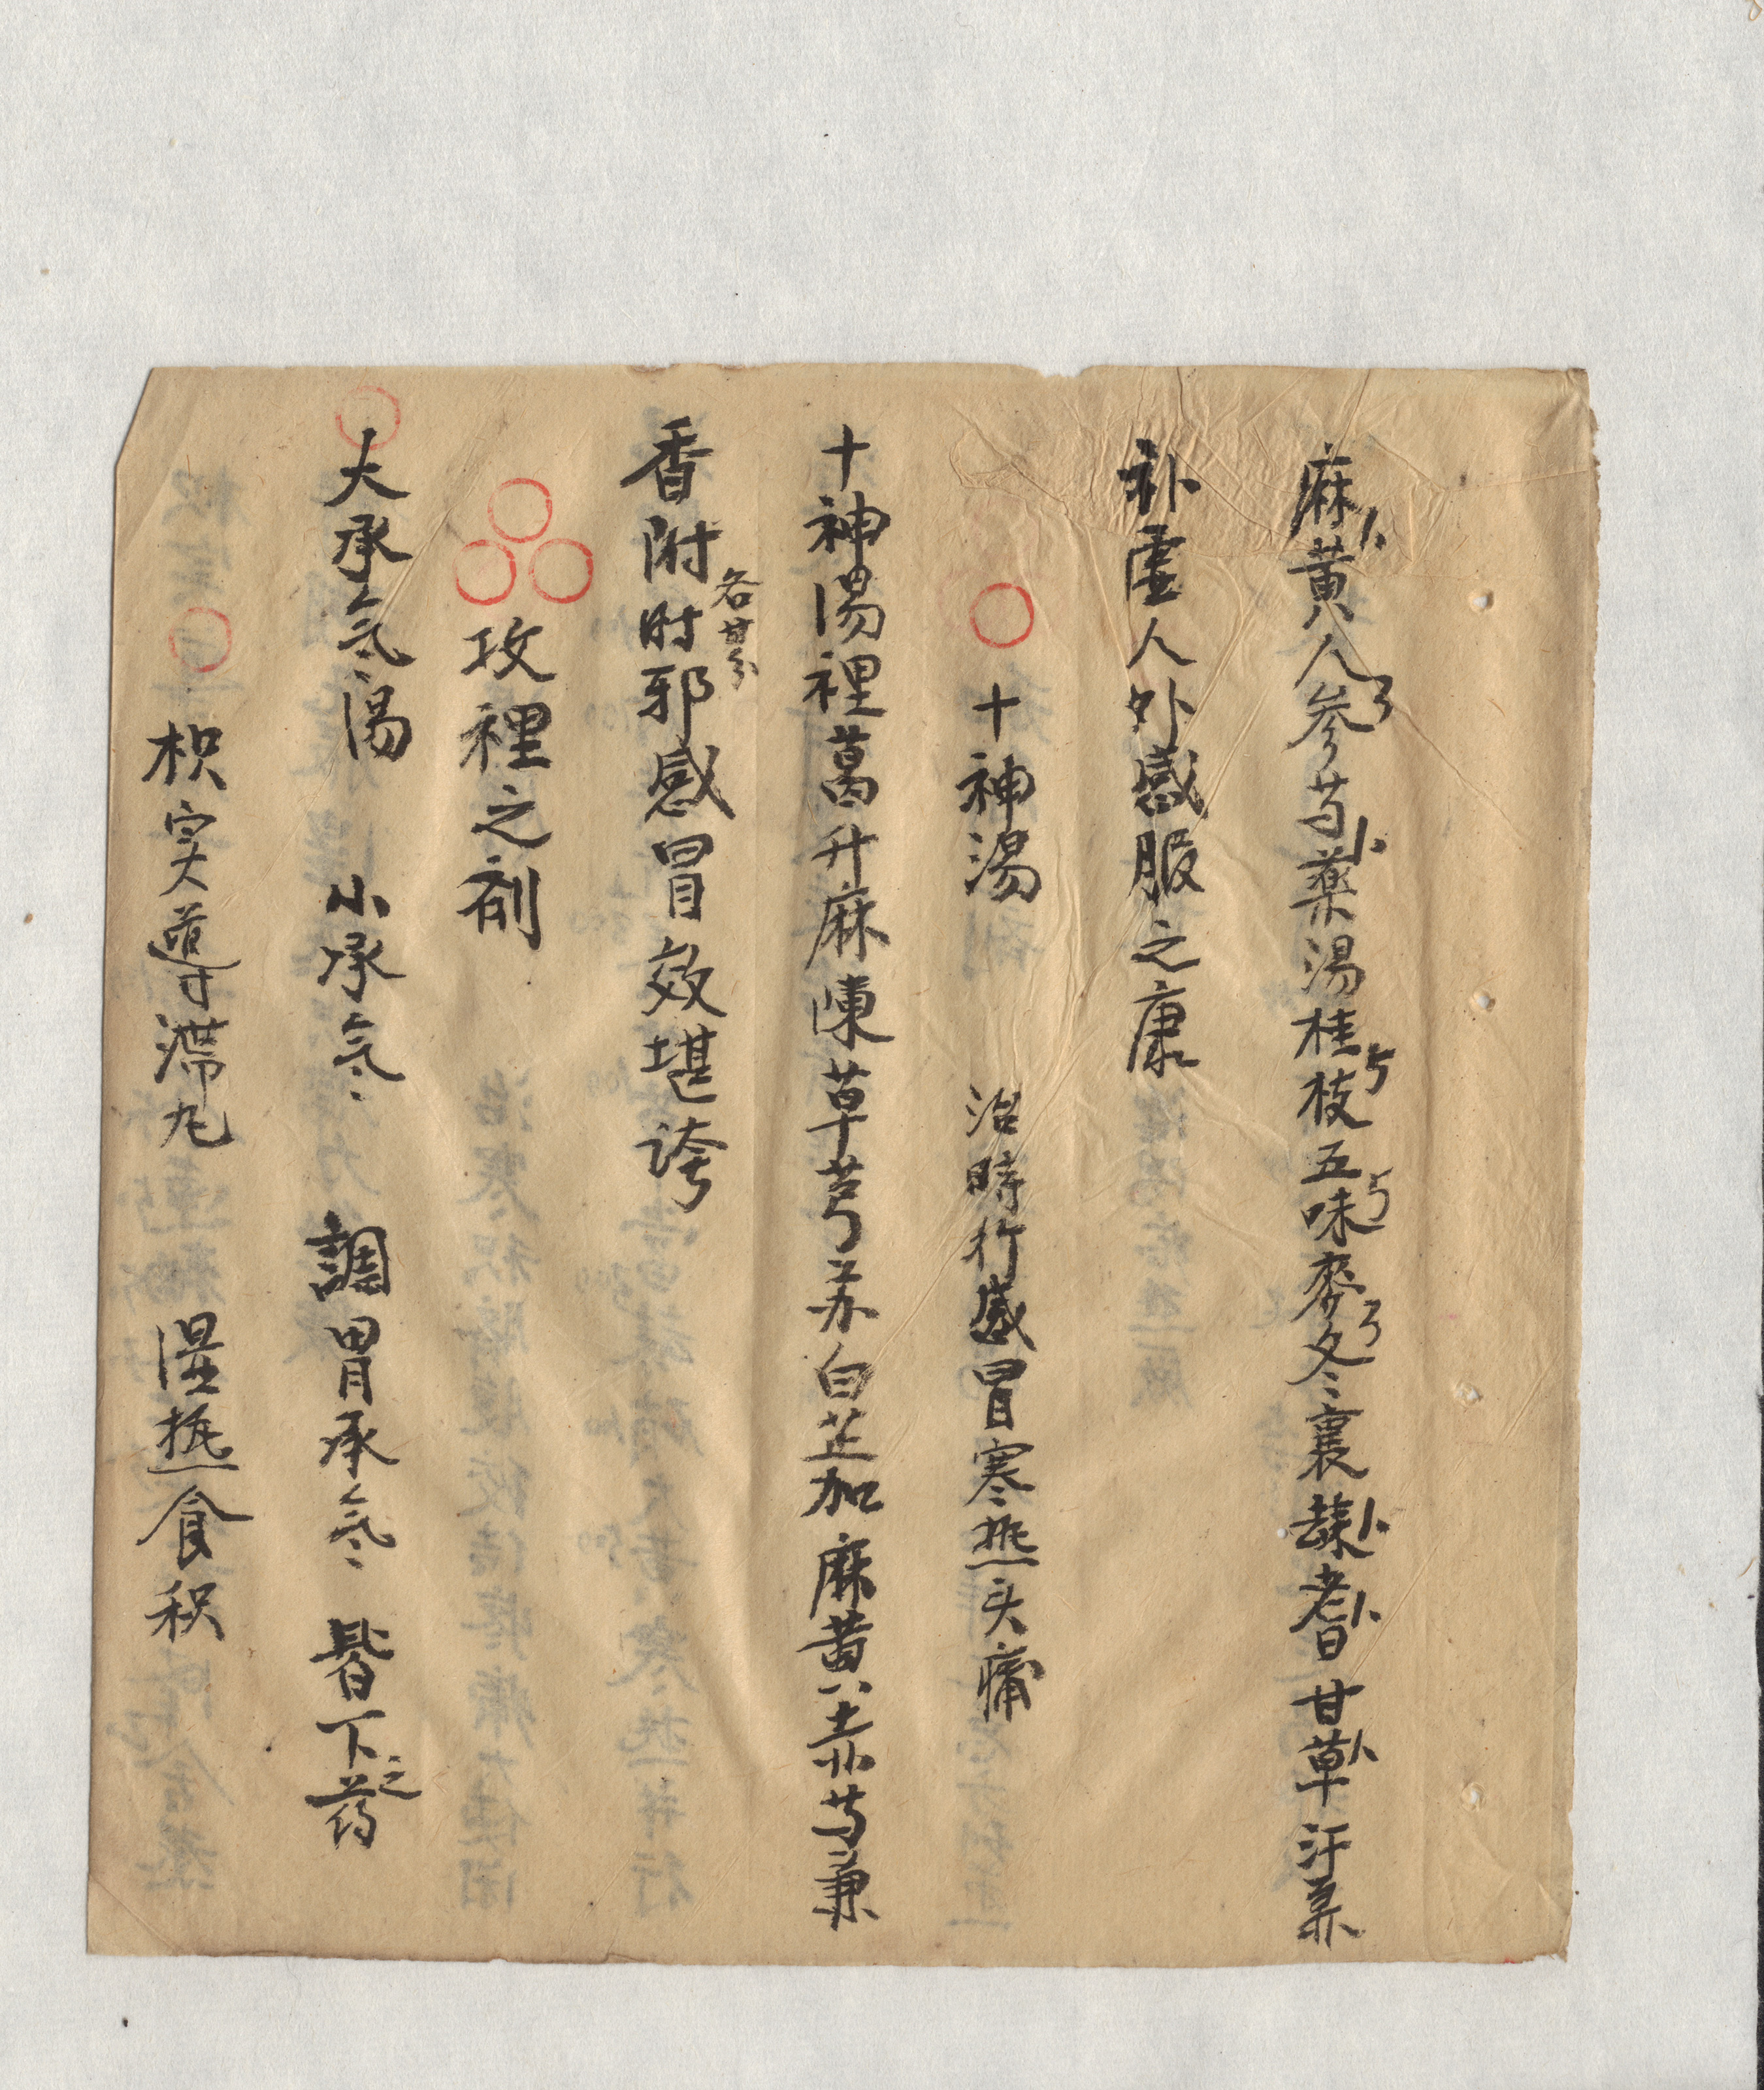 麻黄人参芍薬湯桂枝五味麥冬襄歸耆甘草汗兼
补虛人外感服之康
十神湯 治時行感冒寒热头痛
十神湯裡葛升麻陳草芎苏白芷加麻黄赤芍兼
香附时邪感冒效堪誇
攻裡之剤
大承氣湯 小承氣 調胃承氣 皆下之药
枳实導滯丸 湿热食积